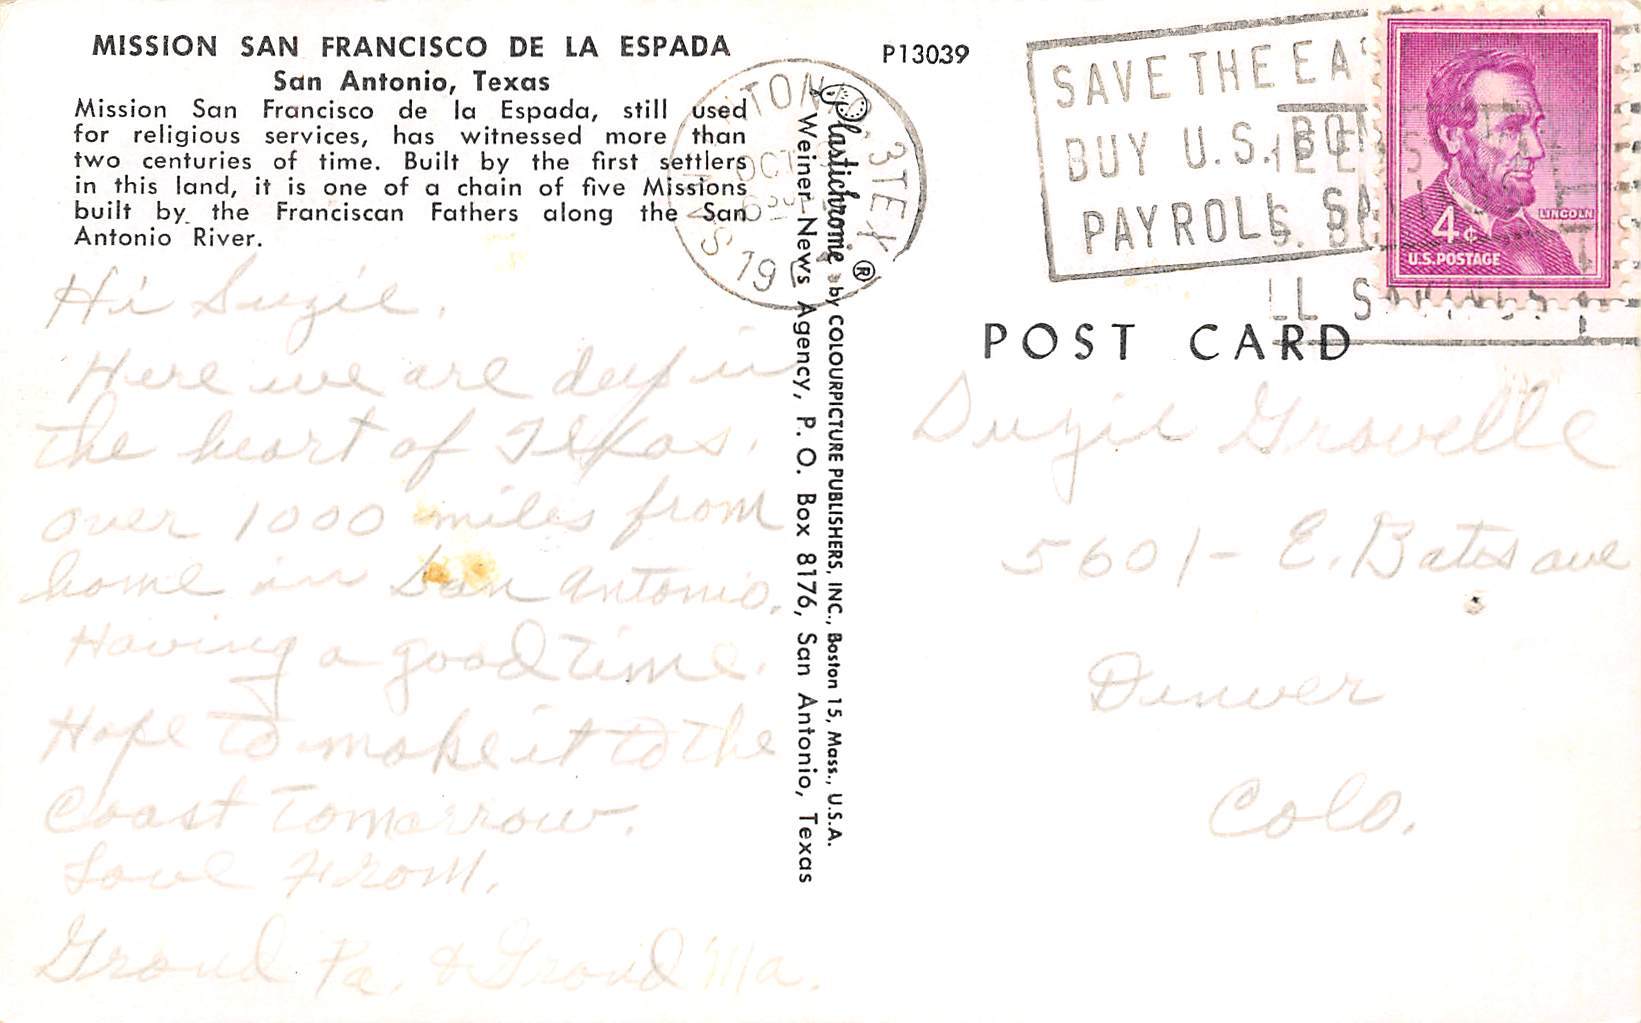 MISSION SAN FRANCISCO DE LA ESPADA
San Antonio, Texas
Mission San Francisco de la Espada, still used
for religious services, has witnessed more than
two centuries of time. Built by the first settlers
in this land, it is one of a chain of five Missions
built by the Franciscan Fathers along the San
Antonio River.
Hi Suzie.
Here we are deep in
the heart of Texas.
over 1000 miles from
home in San Antonio.
Having a good time.
Hope to make it to the
Coast Tomorrow.
Love From.
Grand Pa. & Grand Ma.
Plastichrome ® by COLOURPICTURE PUBLISHERS, INC., Boston 15, Mass., U.S.A.
Weiner News Agency, P. O. Box 8176, San Antonio, Texas
P13039
TEX
OCT
SAVE THE EA
BUY U.S. BON
PAYROLL SA
LL S
4¢
LINCOLN
U.S. POSTAGE
POST CARD
Suzie Gravelle
5601- E. Bates ave
Denver
Colo.